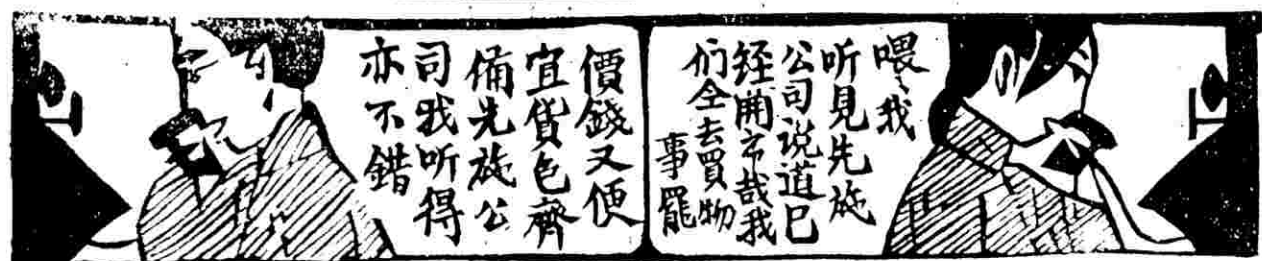 喂〻我
听見先施
公司说道巳
经開市哉我
们仝去買物
事罷
價錢又便
宜貨色齊
備先施公
司我听得
亦不錯